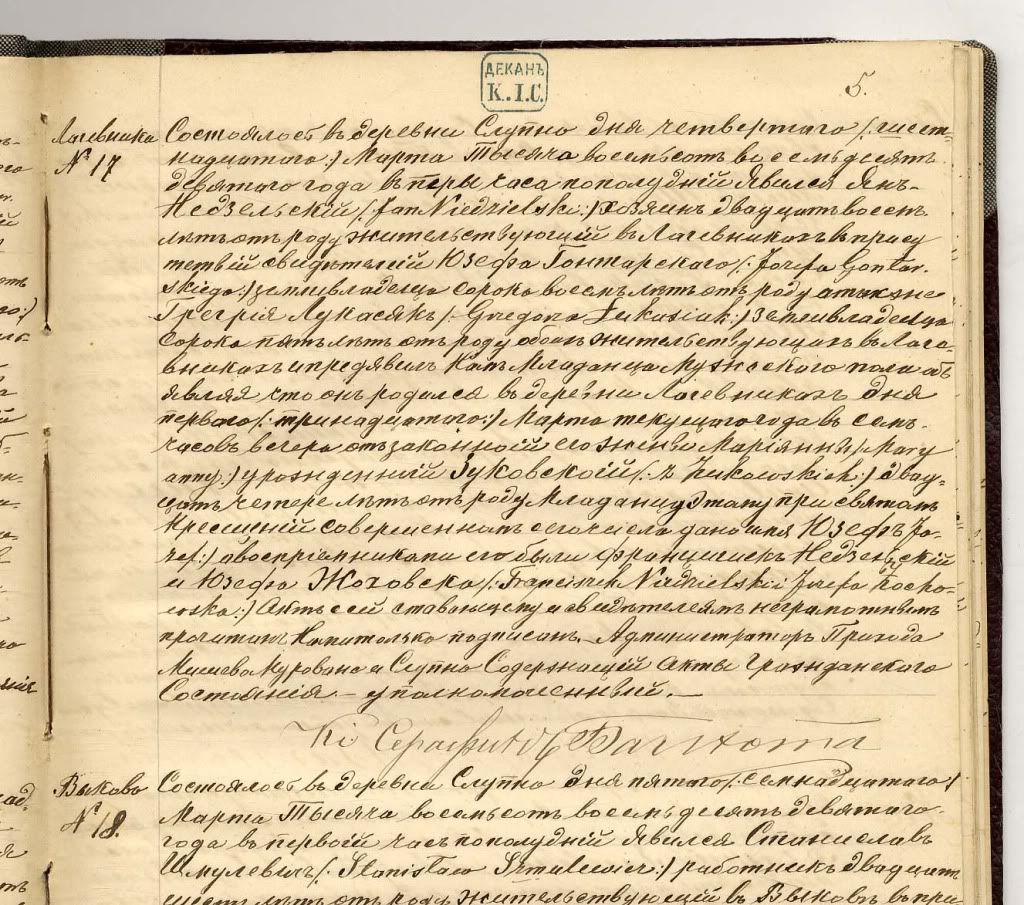 ДЕКАНЪ
К.І.С.
5.
Лагевники
№ 17
Состоялось въ деревни Слупно дня четвертаго /:шест-
надцатаго:/ Марта Тысяча восемьсотъ восемьдесятъ
девятаго года въ часа пополудній явился Янъ
Недзельскій /:Jan Niedzielski:/ хозяинъ двадцать восемь
лѣтъ отъ роду жительствующій въ Лагевникахъ въ присут-
ствіи свидѣтелей Юзефа Гонтарскаго /:Józefa Gontar-
skiego:/ землевладельца сорокъ восемь лѣтъ отъ роду а также
Лукасякъ /:Gregora Łukasiak:/ землевладельца
сорока пять лѣтъ отъ роду обоихъ жительствующихъ въ Лаге-
вникахъ и предявилъ Намъ Младанца Мужескаго пола об-
являя что онъ родился въ деревни Лагевникахъ дня
перваго /:тринадцатаго:/ Марта текущаго года въ семь
часовъ вечера отъ законной его жены Маріянны /:Mary-
anny:/ урожденный Зуковской /:z Żukowskich:/ двад-
цать четере лѣтъ отъ роду Младанцу этому при святомъ
Крещеній совершенномъ сегочисла дано имя Юзефъ /:Jó-
zef:/ а воспріемниками его были Францишекъ Недзельскій
и Юзефа Жоховска /:Franciszek Niedzielski i Józefa
Актъ сей ставающему и свидетелямъ неграмотнымъ
прочитанъ Нами только подписанъ. Администраторъ Прихода
Мишево Мурована и Слупно Содержащій Акты Гражданскаго
Состоянія – уполномоченный. –
Кс Серафинъ
Выково
№ 18.
Состоялось въ деревни Слупно дня пятаго /:семнадцатаго:/
Марта Тысяча восемьсотъ восемьдесятъ девятаго
года въ первой часъ пополудній явился Станиславъ
Шмулевичъ /:Stanisław Szmulewicz:/ работникъ двадцать
шесть лѣтъ отъ роду жительствующій въ Выковѣ въ при-